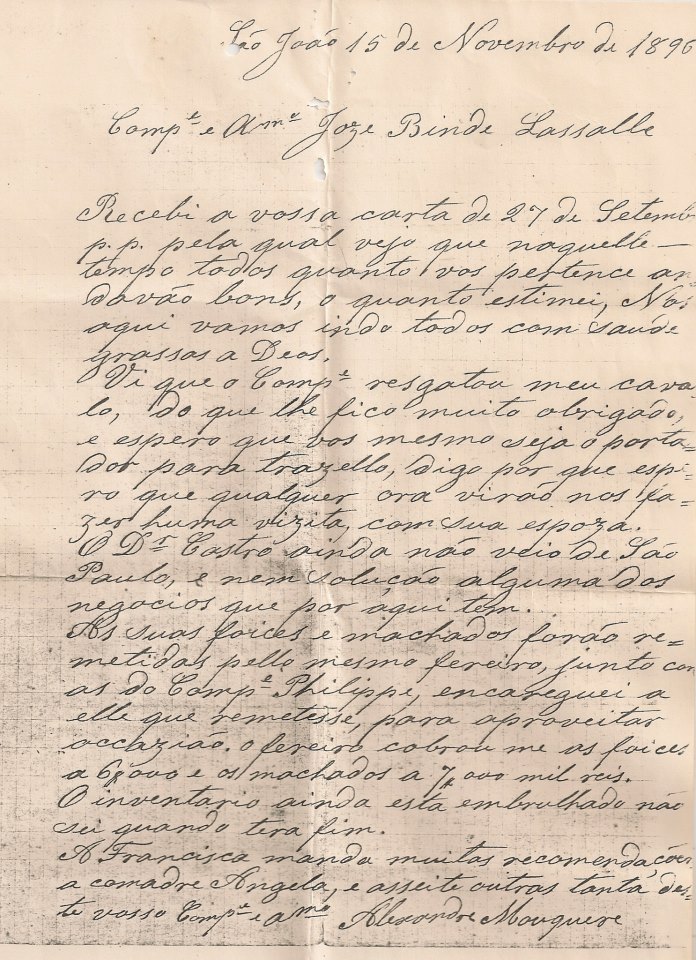 São João 15 de Novembro de 1896
Compe e Amo Joze Binde Lassalle
Recebi a vossa carta de 27 de Setemb
p.p. pela qual vejo que naquelle
tempo todos quanto vos pertence an
davão bons, o quanto estimei, Nos
aqui vamos indo todos com saúde
grassas a Deos.
Vi que o Compe resgatou meu cava
lo, do que lhe fico muito obrigádo,
e espero que vos mesmo seja o porta=
dor para trazello, digo por que espe=
ro que qualquer ora virão nos fa=
zer huma vizita, com sua espoza.
O Dr Castro ainda não veio de São
Paulo, e nem solução alguma dos
negocios que por áqui tem.
As suas foices e machados forão re=
metidas pello mesmo fereiro, junto com
as do Compe Philippe, encareguei a
elle que remetesse, para aproveitar
occazião. o fereiro cobrou me as foices
a 6$000 e os machados a 7$000 mil reis.
O inventario ainda está embrulhado não
sei quando tera fim.
A Francisca manda muitas recomendações
a comadre Angela, e asseite outras tanta des=
te vosso Compe e amo Alexandre Mouquere